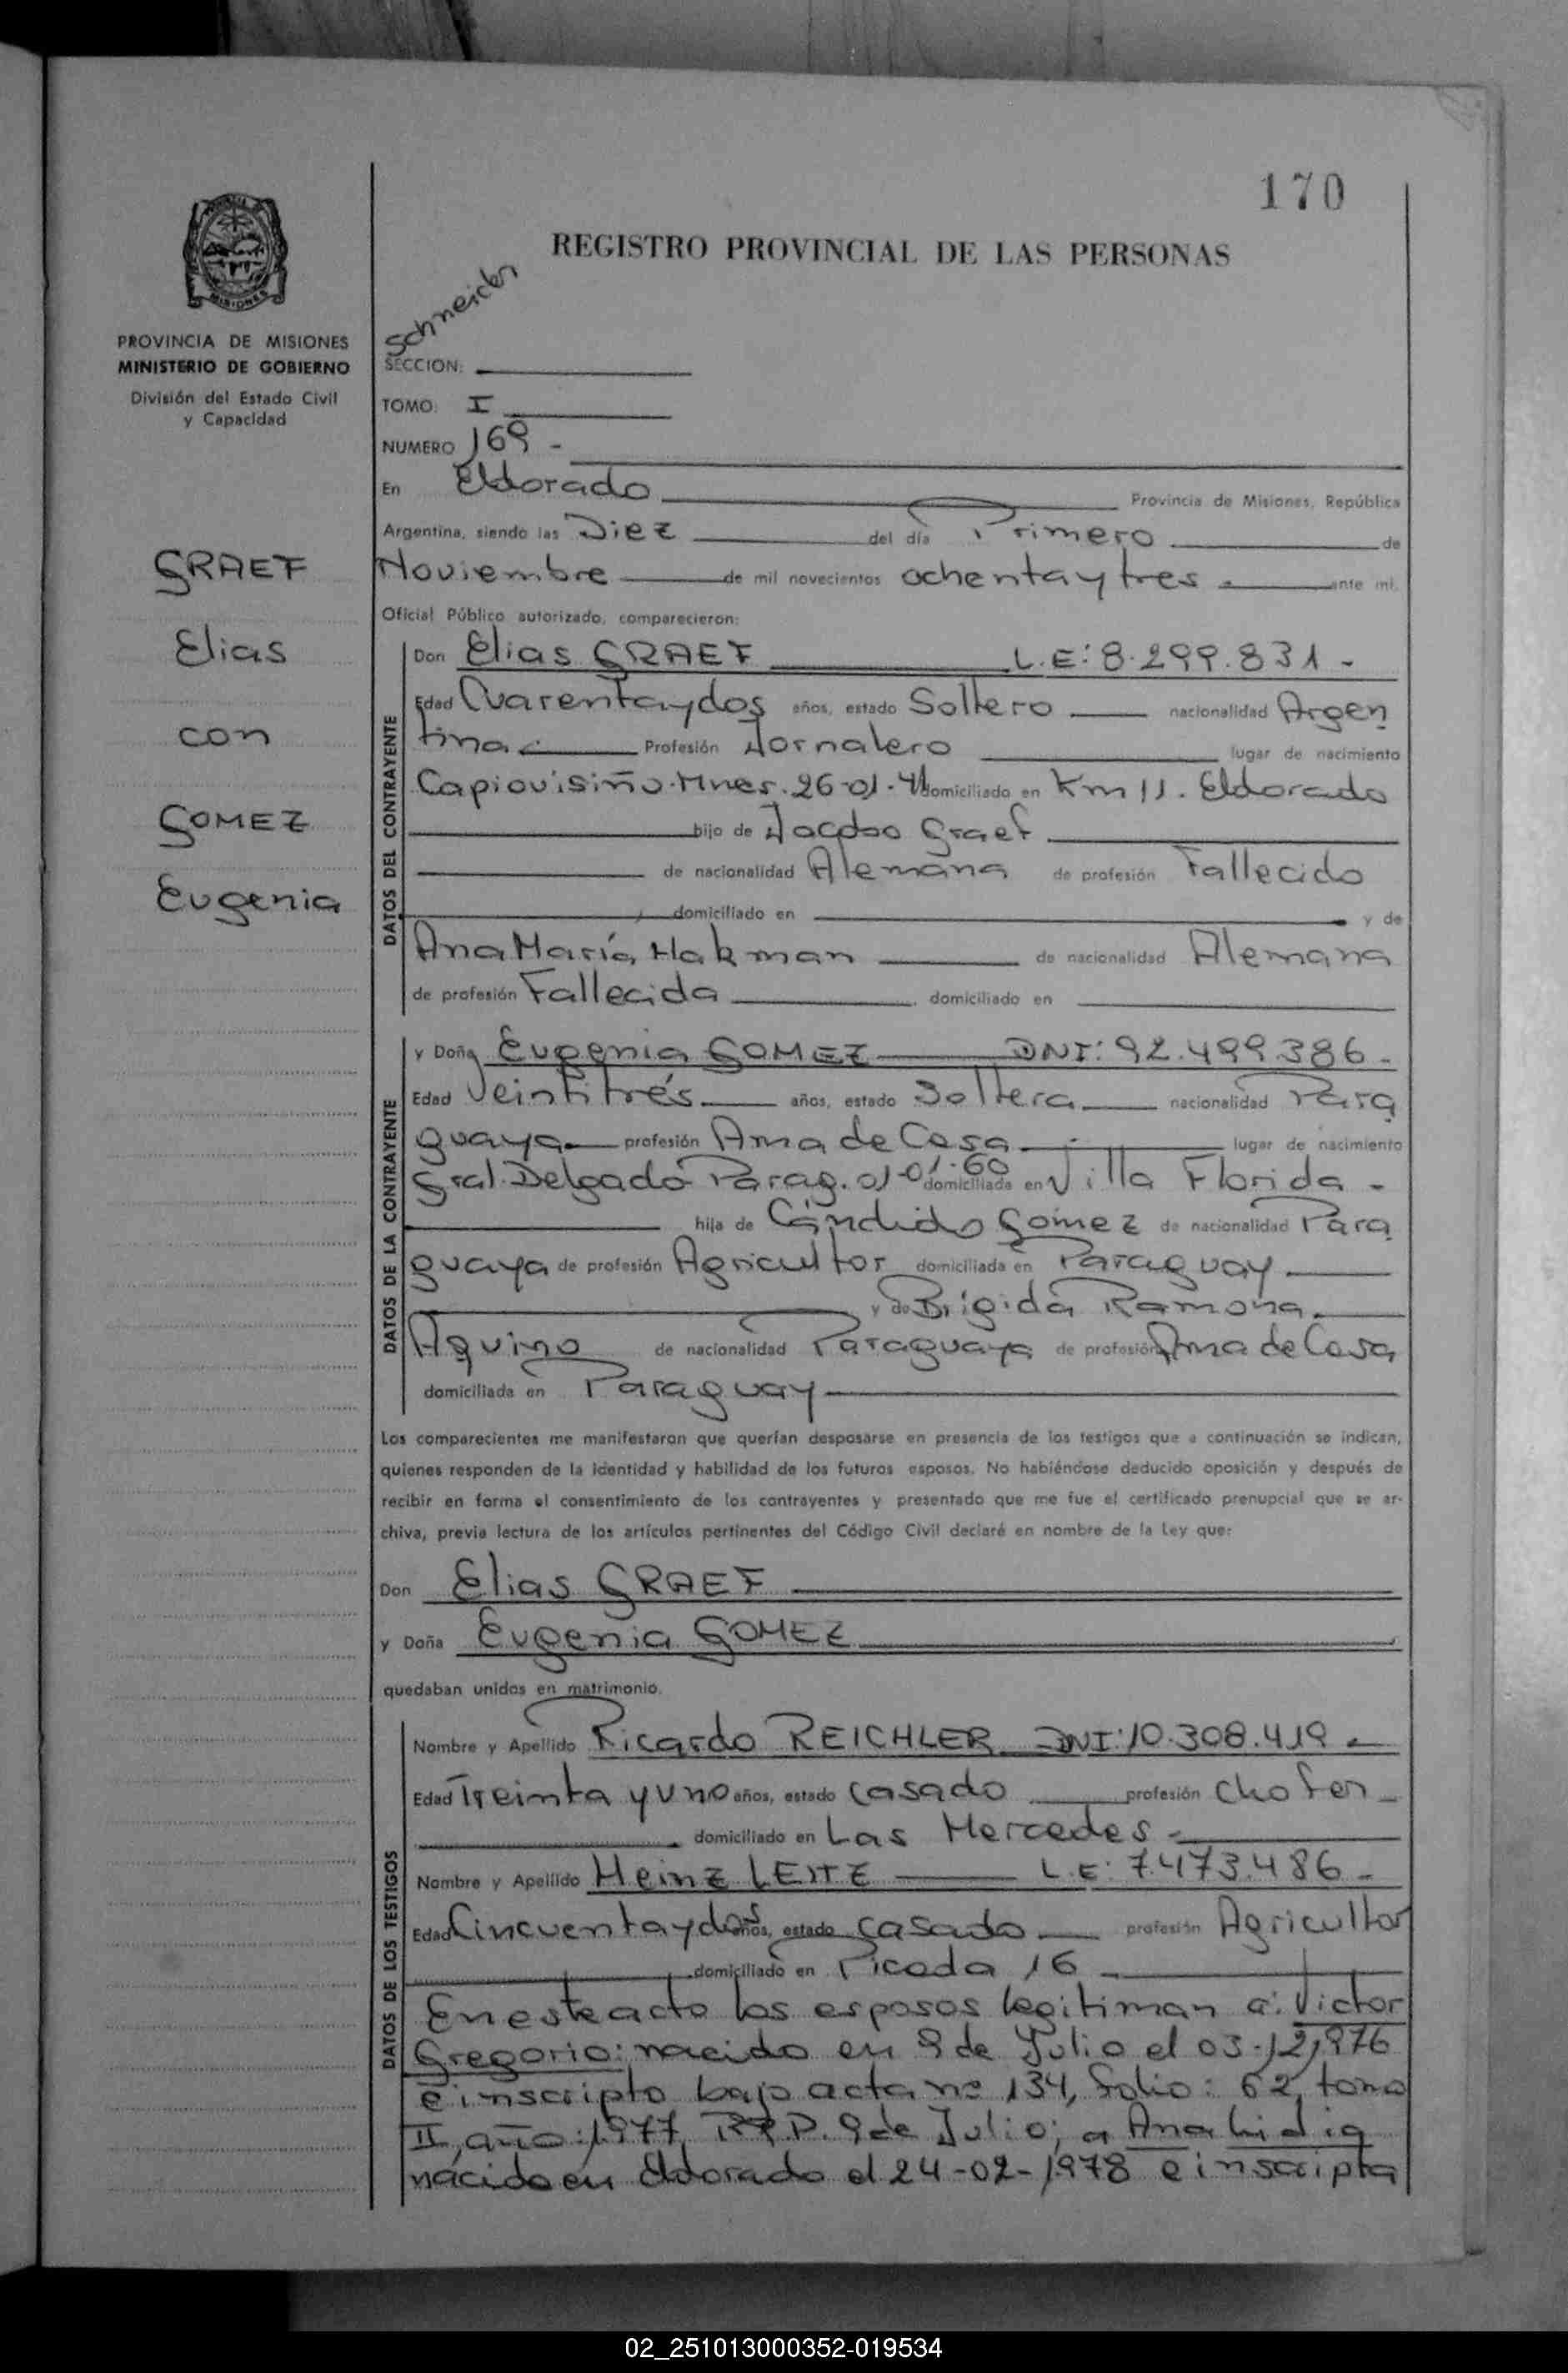 170
REGISTRO PROVINCIAL DE LAS PERSONAS
MISIONES
PROVINCIA DE MISIONES
MINISTERIO DE GOBIERNO
División del Estado Civil
y Capacidad
GRAEF
Elias
con
GOMEZ
Eugenia
Schneider
SECCION:
TOMO: I
NUMERO 169 -
En Eldorado Provincia de Misiones, República
Argentina, siendo las Diez del día Primero de
Noviembre de mil novecientos ochenta y tres ante mi.
Oficial Público autorizado, comparecieron:
DATOS DEL CONTRAYENTE
Don Elias GRAEF L.E: 8.299.831 -
Edad Cuarenta y dos años, estado Soltero nacionalidad Argen
tina Profesión Jornalero lugar de nacimiento
Capiovisiño. Mnes. 26-01-41 domiciliado en Km 11. Eldorado
hijo de Jacobo Graef
de nacionalidad Alemana de profesión Fallecido
domiciliado en y de
Ana María Hakman de nacionalidad Alemana
de profesión Fallecida domiciliado en
DATOS DE LA CONTRAYENTE
y Doña Eugenia GOMEZ DNI: 92.499.386 -
Edad Veintitrés años, estado Soltera nacionalidad Para
guaya profesión Ama de Casa lugar de nacimiento
Gral. Delgado Parag. 01-01-60 domiciliada en Villa Florida -
hija de Cándido Gómez de nacionalidad Para
guaya de profesión Agricultor domiciliada en Paraguay
y de Brígida Ramona
Aquino de nacionalidad Paraguaya de profesión Ama de Casa
domiciliada en Paraguay
Los comparecientes me manifestaron que querían desposarse en presencia de los testigos que a continuación se indican,
quienes responden de la identidad y habilidad de los futuros esposos. No habiéndose deducido oposición y después de
recibir en forma el consentimiento de los contrayentes y presentado que me fue el certificado prenupcial que se ar-
chiva, previa lectura de los artículos pertinentes del Código Civil declaré en nombre de la Ley que:
Don Elias GRAEF
y Doña Eugenia GOMEZ
quedaban unidos en matrimonio.
DATOS DE LOS TESTIGOS
Nombre y Apellido Ricardo REICHLER DNI: 10.308.419 -
Edad Treinta y uno años, estado Casado profesión Chofer -
domiciliado en Las Mercedes -
Nombre y Apellido Heinz LEITZ L.E: 7.473.486 -
Edad Cincuenta y dos años, estado casado profesión Agricultor
domiciliado en Picada 16
En este acto los esposos legitiman a: Victor
Gregorio: nacido en 9 de Julio el 03-12-1976
e inscripto bajo acta nº 134, folio: 62, tomo
II, año: 1977, R.P.P. 9 de Julio; a Ana Lidia
nacida en Eldorado el 24-02-1978 e inscripta
02_251013000352-019534